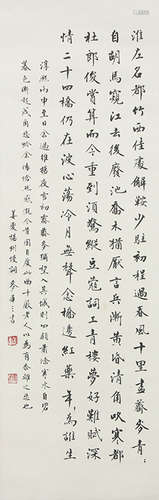 淮左名都竹西佳處解鞍少駐初程過春風十里盡薺麥青:
自胡馬窺江去後廢池喬木猶厭言兵漸黃昏清角吹寒都
杜郎俊賞算而今重到須驚縱豆蔻詞工青樓夢好難賦深
情二十四橋仍在波心蕩冷月無聲念橋邊紅藥年:為誰生
淳熙丙申至日余過維揚夜雪初霽薺麥彌望入其城則四顧蕭條寒水自碧
暮色漸起戍角悲吟余懷愴然感慨今昔因自度此曲千巖老人以為有黍離之悲也
姜夔揚州慢詞